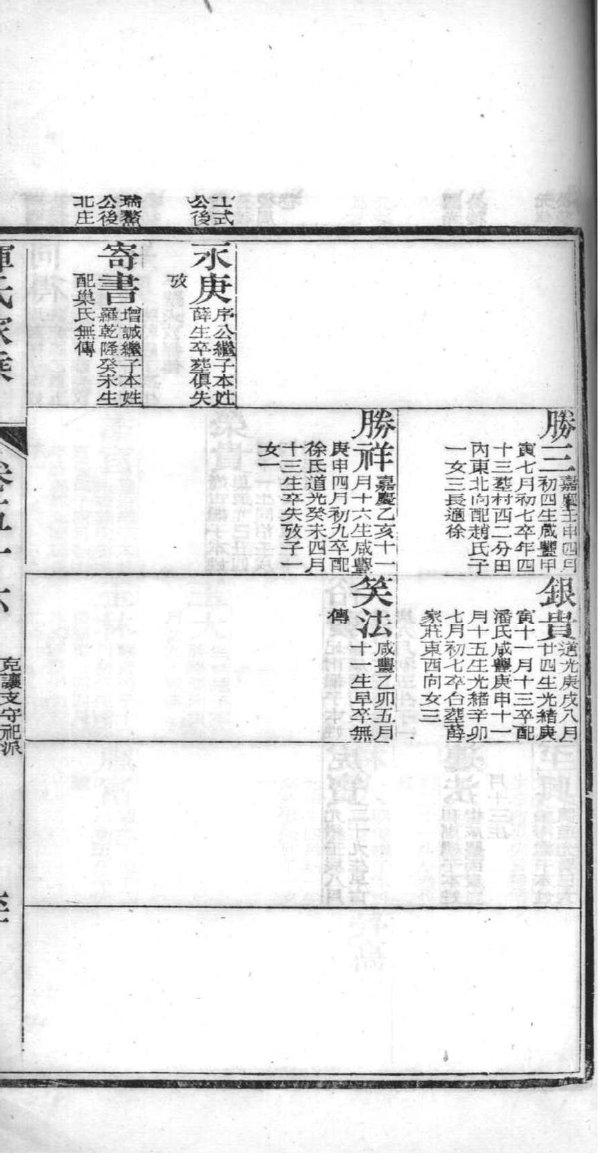 式
公後
永庚
序公繼子本姓
薛生卒葬俱失
攷
瑞鰲
公後
北庄
寄書
增誠繼子本姓
羅乾隆癸未生
配巢氏無傳
勝三
嘉慶壬申四月
初四生咸豐甲
寅七月初七卒年四
十三葬村西二分田
內東北向配趙氏子
一女三長適徐
勝祥
嘉慶乙亥十一
月十六生咸豐
庚申四月初九卒配
徐氏道光癸未四月
十三生卒失攷子一
女一
銀貴
道光庚戌八月
廿四生光緒庚
寅十一月十三卒配
潘氏咸豐庚申十一
月十五生光緒辛卯
七月初七卒合葬薛
家莊東西向女三
笑法
咸豐乙卯五月
十一生早卒無
傳
惲氏家乘
卷五十六
克讓支守祀派